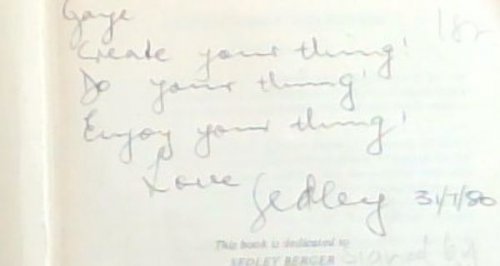 Gaye
Create your thing'
Do your thing'
Enjoy your thing'
Love Sedley 31/7/80
This book is dedicated to
SEDLEY BERGER
signed by